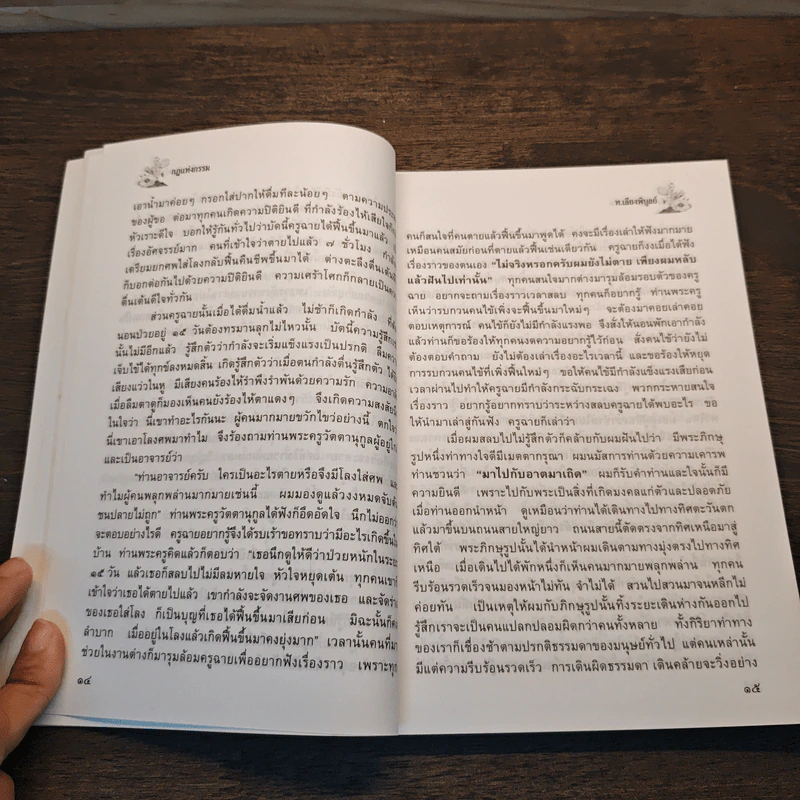 กฎแห่งกรรม
เอาน้ำมาค่อยๆ กรอกใส่ปากให้ดื่มทีละน้อยๆ ตามความ
ของผู้ขอ ต่อมาทุกคนเกิดความปิติยินดี ที่กำลังร้องไห้เสียใจก็
หัวเราะดีใจ บอกให้รู้กันทั่วไปว่าบัดนี้ครูฉายได้ฟื้นขึ้นมาแล้ว
เรื่องอัศจรรย์มาก คนที่เข้าใจว่าตายไปแล้ว ๗ ชั่วโมง
เตรียมยกศพใส่โลงกลับฟื้นคืนชีพขึ้นมาได้ ต่างตะลึงตื่นเต้น
ก็บอกต่อกันไปด้วยความปิติยินดี ความเศร้าโศกก็กลายเป็น
ตื่นเต้นดีใจทั่วกัน
ส่วนครูฉายนั้นเมื่อได้ดื่มน้ำแล้ว ไม่ช้าก็เกิดกำลัง
นอนป่วยอยู่ ๑๕ วันต้องทรมานลุกไม่ไหวนั้น บัดนี้ความรู้สึก
นั้นไม่มีอีกแล้ว รู้สึกตัวว่ากำลังจะเริ่มแข็งแรงเป็นปรกติ
เจ็บไข้ได้ทุกข์ลงหมดสิ้น เกิดรู้สึกตัวว่าเมื่อตนกำลังตื่นรู้สึกตัว
เสียงแว่วในหู มีเสียงคนร้องไห้รำพึงรำพันด้วยความรัก
เมื่อลืมตาดูก็มองเห็นคนยังร้องไห้ตาแดงๆ จึงเกิดความสงสัย
ในใจว่า นี่เขาทำอะไรกันนะ ผู้คนมากมายขวักไขว่อย่างนี้
นี่เขาเอาโลงศพมาทำไม จึงร้องถามท่านพระครูวัตตานุกูลผู้อยู่ใก
และเป็นอาจารย์ว่า
"ท่านอาจารย์ครับ ใครเป็นอะไรตายหรือจึงมีโลงใส่ศพ
ทำไมผู้คนพลุกพล่านมากมายเช่นนี้ ผมมองดูแล้วงงหมดจับต้
ชนปลายไม่ถูก" ท่านพระครูวัตตานุกูลได้ฟังก็อึดอัดใจ นึกไม่ออก
จะตอบอย่างไรดี ครูฉายอยากรู้จึงได้รบเร้าขอทราบว่ามีอะไรเกิดขึ้นใ
บ้าน ท่านพระครูคิดแล้วก็ตอบว่า "เธอนึกดูให้ดีว่าป่วยหนักในระยะ
๑๕ วัน แล้วเธอก็สลบไปไม่มีลมหายใจ หัวใจหยุดเต้น ทุกคนเขา
เข้าใจว่าเธอได้ตายไปแล้ว เขากำลังจะจัดงานศพของเธอ และจัด
ของเธอใส่โลง ก็เป็นบุญที่เธอได้ฟื้นขึ้นมาเสียก่อน มิฉะนั้นก็
ลำบาก เมื่ออยู่ในโลงแล้วเกิดฟื้นขึ้นมาคงยุ่งมาก" เวลานั้นคนที่
ช่วยในงานต่างก็มารุมล้อมครูฉายเพื่ออยากฟังเรื่องราว เพราะทุก
๑๔
ท.เลียงพิบูลย์
คนก็สนใจที่คนตายแล้วฟื้นขึ้นมาพูดได้ คงจะมีเรื่องเล่าให้ฟังมากมาย
เหมือนคนสมัยก่อนที่ตายแล้วฟื้นเช่นเดียวกัน ครูฉายก็งงเมื่อได้ฟัง
เรื่องราวของตนเอง "ไม่จริงหรอกครับผมยังไม่ตาย เพียงผมหลับ
แล้วฝันไปเท่านั้น" ทุกคนสนใจมากต่างมารุมล้อมรอบตัวของครู
ฉาย อยากจะถามเรื่องราวเวลาสลบ ทุกคนก็อยากรู้ ท่านพระครู
เห็นว่ารบกวนคนไข้เพิ่งจะฟื้นขึ้นมาใหม่ๆ จะต้องมาคอยเล่าคอย
ตอบเหตุการณ์ คนไข้ก็ยังไม่มีกำลังแรงพอ จึงสั่งให้นอนพักเอากำลัง
แล้วท่านก็ขอร้องให้ทุกคนงดความอยากรู้ไว้ก่อน สั่งคนไข้ว่ายังไม่
ต้องตอบคำถาม ยังไม่ต้องเล่าเรื่องอะไรเวลานี้ และขอร้องให้หยุด
การรบกวนคนไข้ที่เพิ่งฟื้นใหม่ๆ ขอให้คนไข้มีกำลังแข็งแรงเสียก่อน
เวลาผ่านไปทำให้ครูฉายมีกำลังกระฉับกระเฉง พวกกระหายสนใจ
เรื่องราว อยากรู้อยากทราบว่าระหว่างสลบครูฉายได้พบอะไร ขอ
ให้นำมาเล่าสู่กันฟัง ครูฉายก็เล่าว่า
เมื่อผมสลบไปไม่รู้สึกตัวก็คล้ายกับผมฝันไปว่า มีพระภิกษุ
รูปหนึ่งท่าทางใจดีมีเมตตากรุณา ผมนมัสการท่านด้วยความเคารพ
ท่านชวนว่า "มาไปกับอาตมาเถิด" ผมก็รับคำท่านและใจนั้นก็มี
ความยินดี เพราะไปกับพระเป็นสิ่งที่เกิดมงคลแก่ตัวและปลอดภัย
เมื่อท่านออกนำหน้า ดูเหมือนว่าท่านได้เดินทางไปทางทิศตะวันตก
แล้วมาขึ้นบนถนนสายใหญ่ยาว ถนนสายนี้ตัดตรงจากทิศเหนือมาสู่
ทิศใต้ พระภิกษุรูปนั้นได้นำหน้าผมเดินตามทางมุ่งตรงไปทางทิศ
เหนือ เมื่อเดินไปได้พักหนึ่งก็เห็นคนมากมายพลุกพล่าน ทุกคน
รีบร้อนรวดเร็วจนมองหน้าไม่ทัน จำไม่ได้ สวนไปสวนมาจนหลีกไม่
ค่อยทัน เป็นเหตุให้ผมกับภิกษุรูปนั้นทิ้งระยะเดินห่างกันออกไป
รู้สึกเราจะเป็นคนแปลกปลอมผิดกว่าคนทั้งหลาย ทั้งกิริยาท่าทาง
ของเราก็เชื่องช้าตามปรกติธรรมดาของมนุษย์ทั่วไป แต่คนเหล่านั้น
มีแต่ความรีบร้อนรวดเร็ว การเดินผิดธรรมดา เดินคล้ายจะวิ่งอย่าง
๑๕